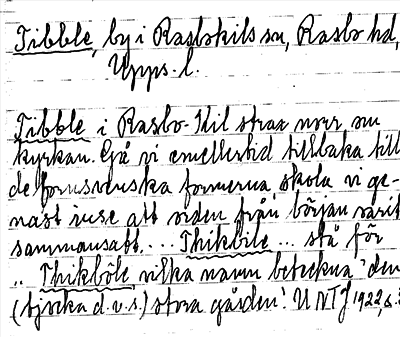 Tibble, by i Rasbokils sn, Rasbo hd,
Upps. l.
Tibble i Rasbo-Kil strax norr om
kyrkan. Gå vi emellertid tillbaka till
de fornsvenska formerna, skola vi ge-
nast inse att orden från början varit
sammansatt. ... Thikbile ... stå för
.. Thikböle vilka namn beteckna "den
(tjocka d.v.s.) stora gården". UNTJ 1922, s.